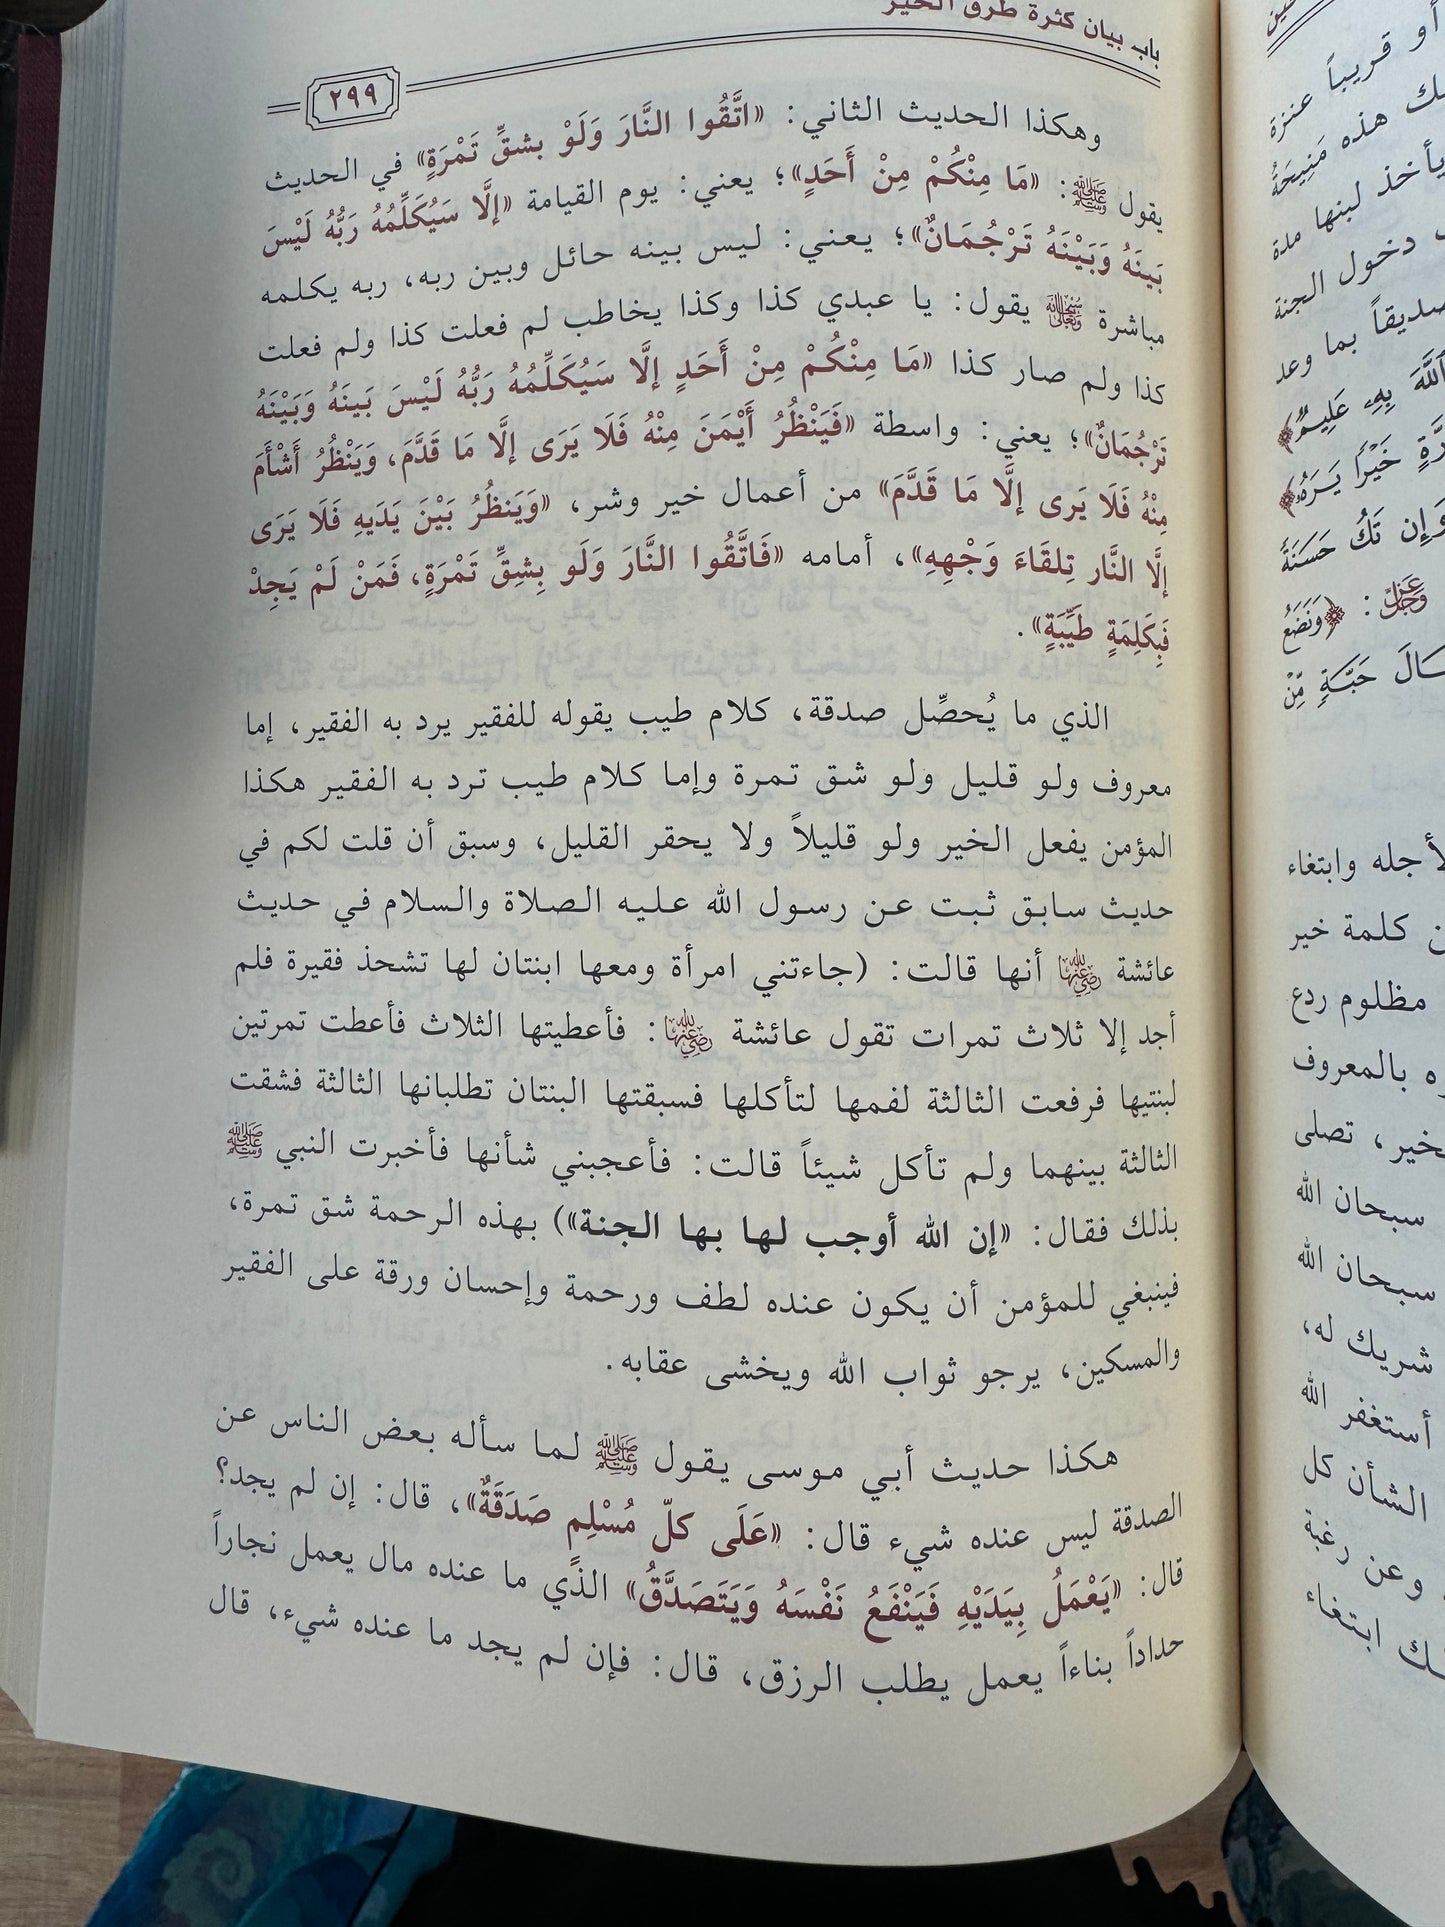 باب بيان كثرة طرق الخير
٢٩٩
وهكذا الحديث الثاني: «اتَّقُوا النَّارَ وَلَوْ بشقِّ تَمْرَةٍ» في الحديث
يقول ﷺ: «مَا مِنْكُمْ مِنْ أَحَدٍ»؛ يعني: يوم القيامة «إلَّا سَيُكَلِّمُهُ رَبُّهُ لَيْسَ
بَينَهُ وَبَيْنَهُ تَرْجُمَانٌ»؛ يعني: ليس بينه حائل وبين ربه، ربه يكلمه
مباشرة سُبْحَانَهُ وَتَعَالَى يقول: يا عبدي كذا وكذا يخاطب لم فعلت كذا ولم فعلت
كذا ولم صار كذا «مَا مِنْكُمْ مِنْ أَحَدٍ إلَّا سَيُكَلِّمُهُ رَبُّهُ لَيْسَ بَينَهُ وَبَيْنَهُ
تَرْجُمَانٌ»؛ يعني: واسطة «فَيَنْظُرُ أَيْمَنَ مِنْهُ فَلَا يَرَى إلَّا مَا قَدَّمَ، وَيَنْظُرُ أَشْأَمَ
مِنْهُ فَلَا يَرى إلَّا مَا قَدَّمَ» من أعمال خير وشر، «وَيَنظُرُ بَيْنَ يَدَيهِ فَلَا يَرَى
إلَّا النَّار تِلقَاءَ وَجْهِهِ»، أمامه «فَاتَّقُوا النَّارَ وَلَو بِشِقِّ تَمْرَةٍ، فَمَنْ لَمْ يَجِدْ
فَبِكَلِمَةٍ طَيِّبَةٍ».
الذي ما يُحصِّل صدقة، كلام طيب يقوله للفقير يرد به الفقير، إما
معروف ولو قليل ولو شق تمرة وإما كلام طيب ترد به الفقير هكذا
المؤمن يفعل الخير ولو قليلاً ولا يحقر القليل، وسبق أن قلت لكم في
حديث سابق ثبت عن رسول الله عليه الصلاة والسلام في حديث
عائشة رَضِيَ اللَّهُ عَنْهَا أنها قالت: (جاءتني امرأة ومعها ابنتان لها تشحذ فقيرة فلم
أجد إلا ثلاث تمرات تقول عائشة رَضِيَ اللَّهُ عَنْهَا: فأعطيتها الثلاث فأعطت تمرتين
لبنتيها فرفعت الثالثة لفمها لتأكلها فسبقتها البنتان تطلبانها الثالثة فشقت
الثالثة بينهما ولم تأكل شيئاً قالت: فأعجبني شأنها فأخبرت النبي ﷺ
بذلك فقال: «إن الله أوجب لها بها الجنة») بهذه الرحمة شق تمرة،
فينبغي للمؤمن أن يكون عنده لطف ورحمة وإحسان ورقة على الفقير
والمسكين، يرجو ثواب الله ويخشى عقابه.
هكذا حديث أبي موسى يقول ﷺ لما سأله بعض الناس عن
الصدقة ليس عنده شيء قال: «عَلَى كلّ مُسْلِمٍ صَدَقَةٌ»، قال: إن لم يجد؟
قال: «يَعْمَلُ بِيَدَيْهِ فَيَنْفَعُ نَفْسَهُ وَيَتَصَدَّقُ» الذي ما عنده مال يعمل نجاراً
حداداً بناءاً يعمل يطلب الرزق، قال: فإن لم يجد ما عنده شيء، قال
أو قريباً عنزة
هذه مَنِيحَةُ
يأخذ لبنها مدة
دخول الجنة
بما وعد
ٱللَّهَ بِهِۦ عَلِيمٌ﴾
خَيْرًا يَرَهُۥ﴾
وَإِن تَكُ حَسَنَةً
عَزَّ وَجَلَّ: ﴿وَنَضَعُ
حَبَّةٍ مِّنْ
لأجله وابتغاء
كلمة خير
مظلوم ردع
بالمعروف
تصلى
سبحان الله
سبحان الله
شريك له،
أستغفر الله
الشأن كل
وعن رغبة
ابتغاء